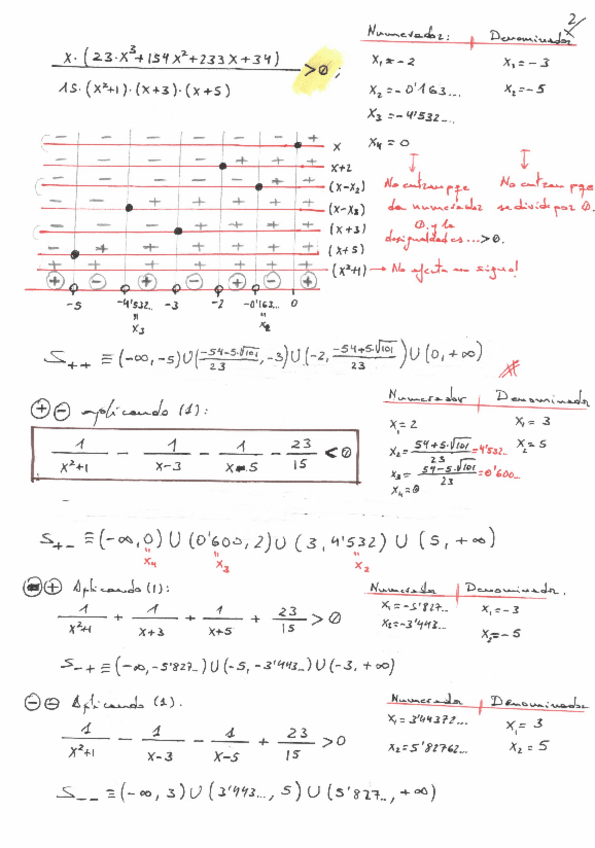 2
x·(23·x³+154x²+233x+34)
———————————————— >0;
15·(x²+1)·(x+3)·(x+5)
Numerador: | Denominador
x₁=-2 | x₁=-3
x₂=-0'163... | x₂=-5
x₃=-4'532...
x₄=0
No entran pqe | No entran pqe
da numerador | se divide por 0.
0. y la
desigualdad es ...>0.
- - - - - - + x
- - - - + + + x+2
- - - - - + + (x-x₂)
- - + + + + + (x-x₃)
- - - + + + + (x+3)
- + + + + + + (x+5)
+ + + + + + + (x²+1) → No afecta en signo!
⊕ ⊖ ⊕ ⊖ ⊕ ⊖ ⊕
-5 -4'532.. -3 -2 -0'163... 0
x₃ x₂
S₊₊ ≡ (-∞,-5)∪((-54-5·√101)/23,-3)∪(-2,(-54+5√101)/23)∪(0,+∞)
⊕⊖ aplicando (1):
1/(x²+1) - 1/(x-3) - 1/(x-5) - 23/15 < 0
Numerador | Denominador
x₁=2 | x₁=3
x₂=(54+5·√101)/23=4'532.. | x₂=5
x₃=(54-5·√101)/23=0'600...
x₄=0
S₊₋ ≡ (-∞,0)∪(0'600,2)∪(3,4'532)∪(5,+∞)
x₄ x₃ x₂
⊖⊕ Aplicando (1):
1/(x²+1) + 1/(x+3) + 1/(x+5) + 23/15 > 0
Numerador | Denominador.
x₁=-5'827.. | x₁=-3
x₂=-3'443... | x₂=-5
S₋₊ ≡ (-∞,-5'827..)∪(-5,-3'443..)∪(-3,+∞)
⊖⊖ Aplicando (1).
1/(x²+1) - 1/(x-3) - 1/(x-5) + 23/15 > 0
Numerador | Denominador
x₁=3'44372... | x₁=3
x₂=5'82762... | x₂=5
S₋₋ ≡ (-∞,3)∪(3'443...,5)∪(5'827..,+∞)